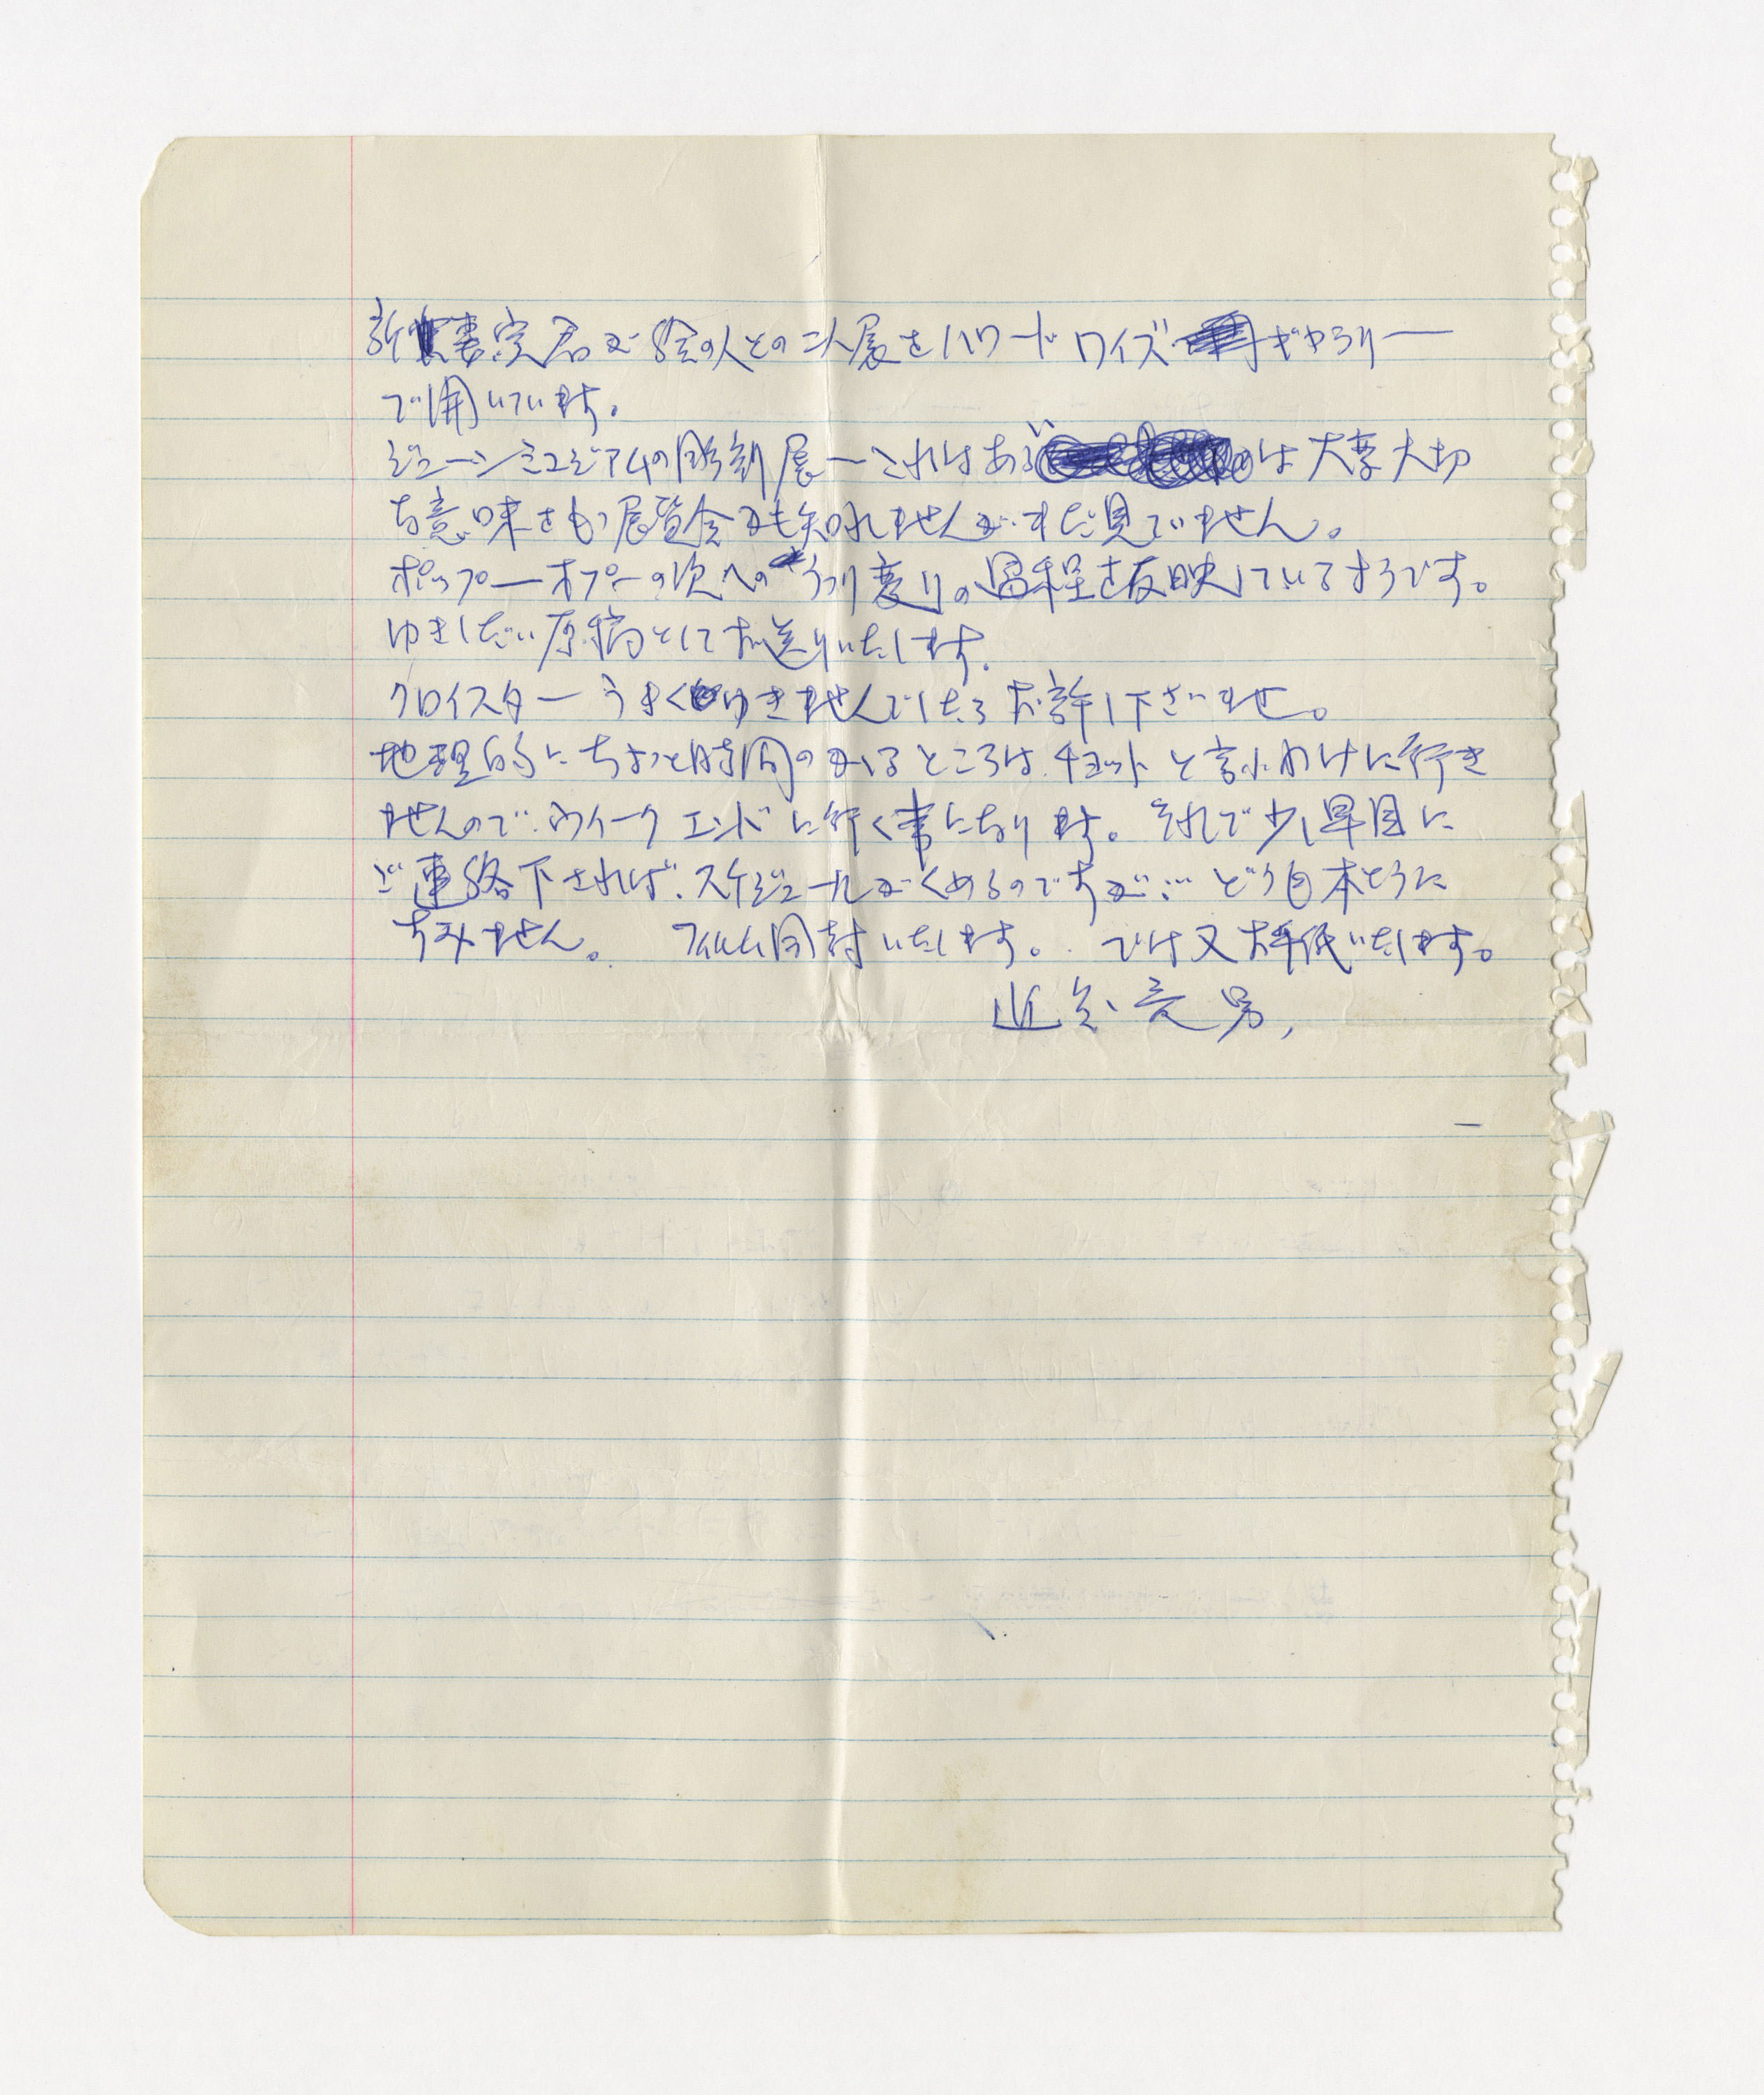 新妻実君が絵の人との二人展をハワードワイズギャラリー
で開いています。
ジューシミュジアムの彫刻展ーこれはあるいは大変大切
な意味をもつ展覧会かも知れませんがまだ見ていません。
ポップーオプーの次へのうつり変りの過程を反映しているそうです。
ゆきしだい原稿としてお送りいたします。
クロイスターうまくゆきませんでしたらお許し下さいませ。
地理的にちょっと時間のかゝるところは、チョットと言ふわけに行き
ませんので、ウイークエンドに行く事になります。それで少し早目に
ご連絡下されば、スケジュールがくめるのですが… どうも本とうに
すみません。 フィルム同封いたします。 では又お手紙いたします。
近 男,